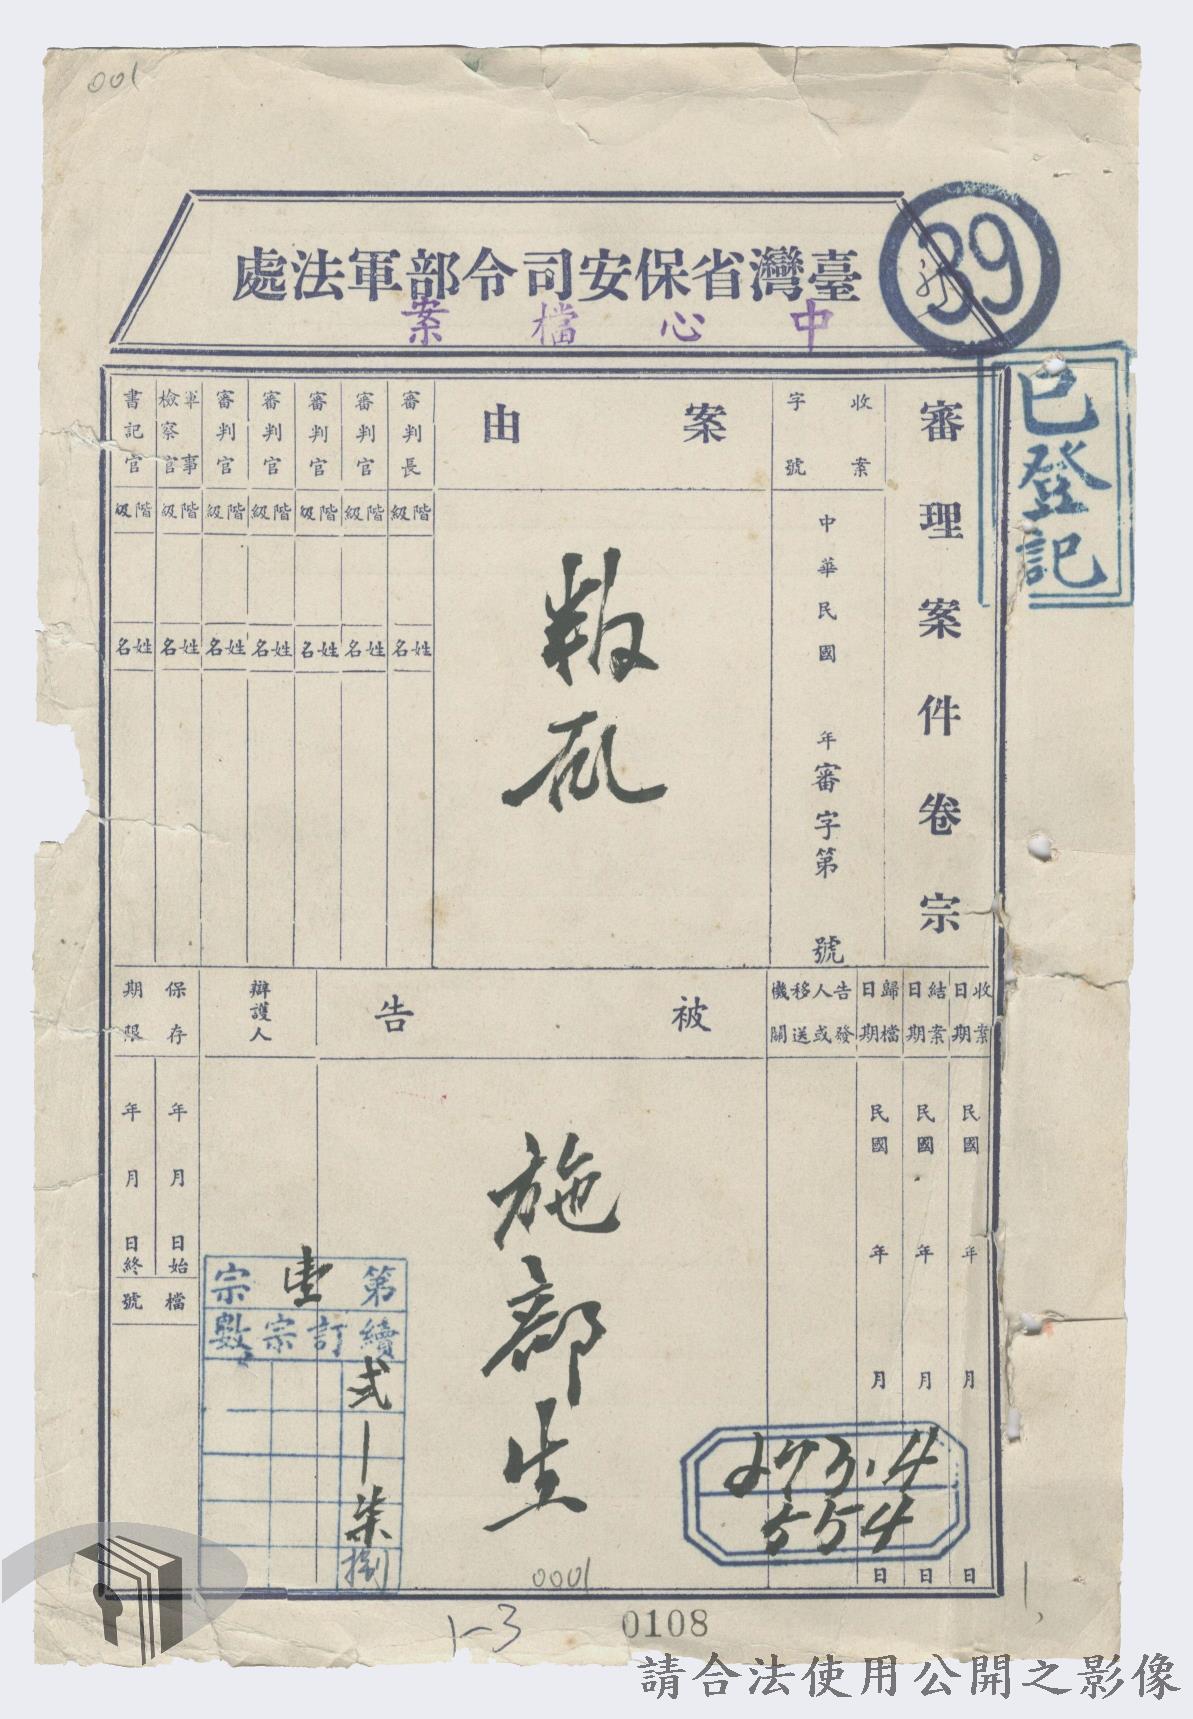 001
臺灣省保安司令部軍法處
中心檔案
39
已登記
審理案件卷宗
收案字號
中華民國 年審字第 號
案由
叛亂
審判長
階級
姓名
審判官
階級
姓名
審判官
階級
姓名
審判官
階級
姓名
審判官
階級
姓名
軍事檢察官
階級
姓名
書記官
階級
姓名
收案日期
民國 年 月 日
結案日期
民國 年 月 日
歸檔日期
民國 年 月 日
告發人或移送機關
被告
施部生
辯護人
保存期限
年 月 日始
年 月 日終
檔號
第壹宗
續訂宗數
弍
|
柒
捌
273.4
554
0001
1-3
0108
請合法使用公開之影像